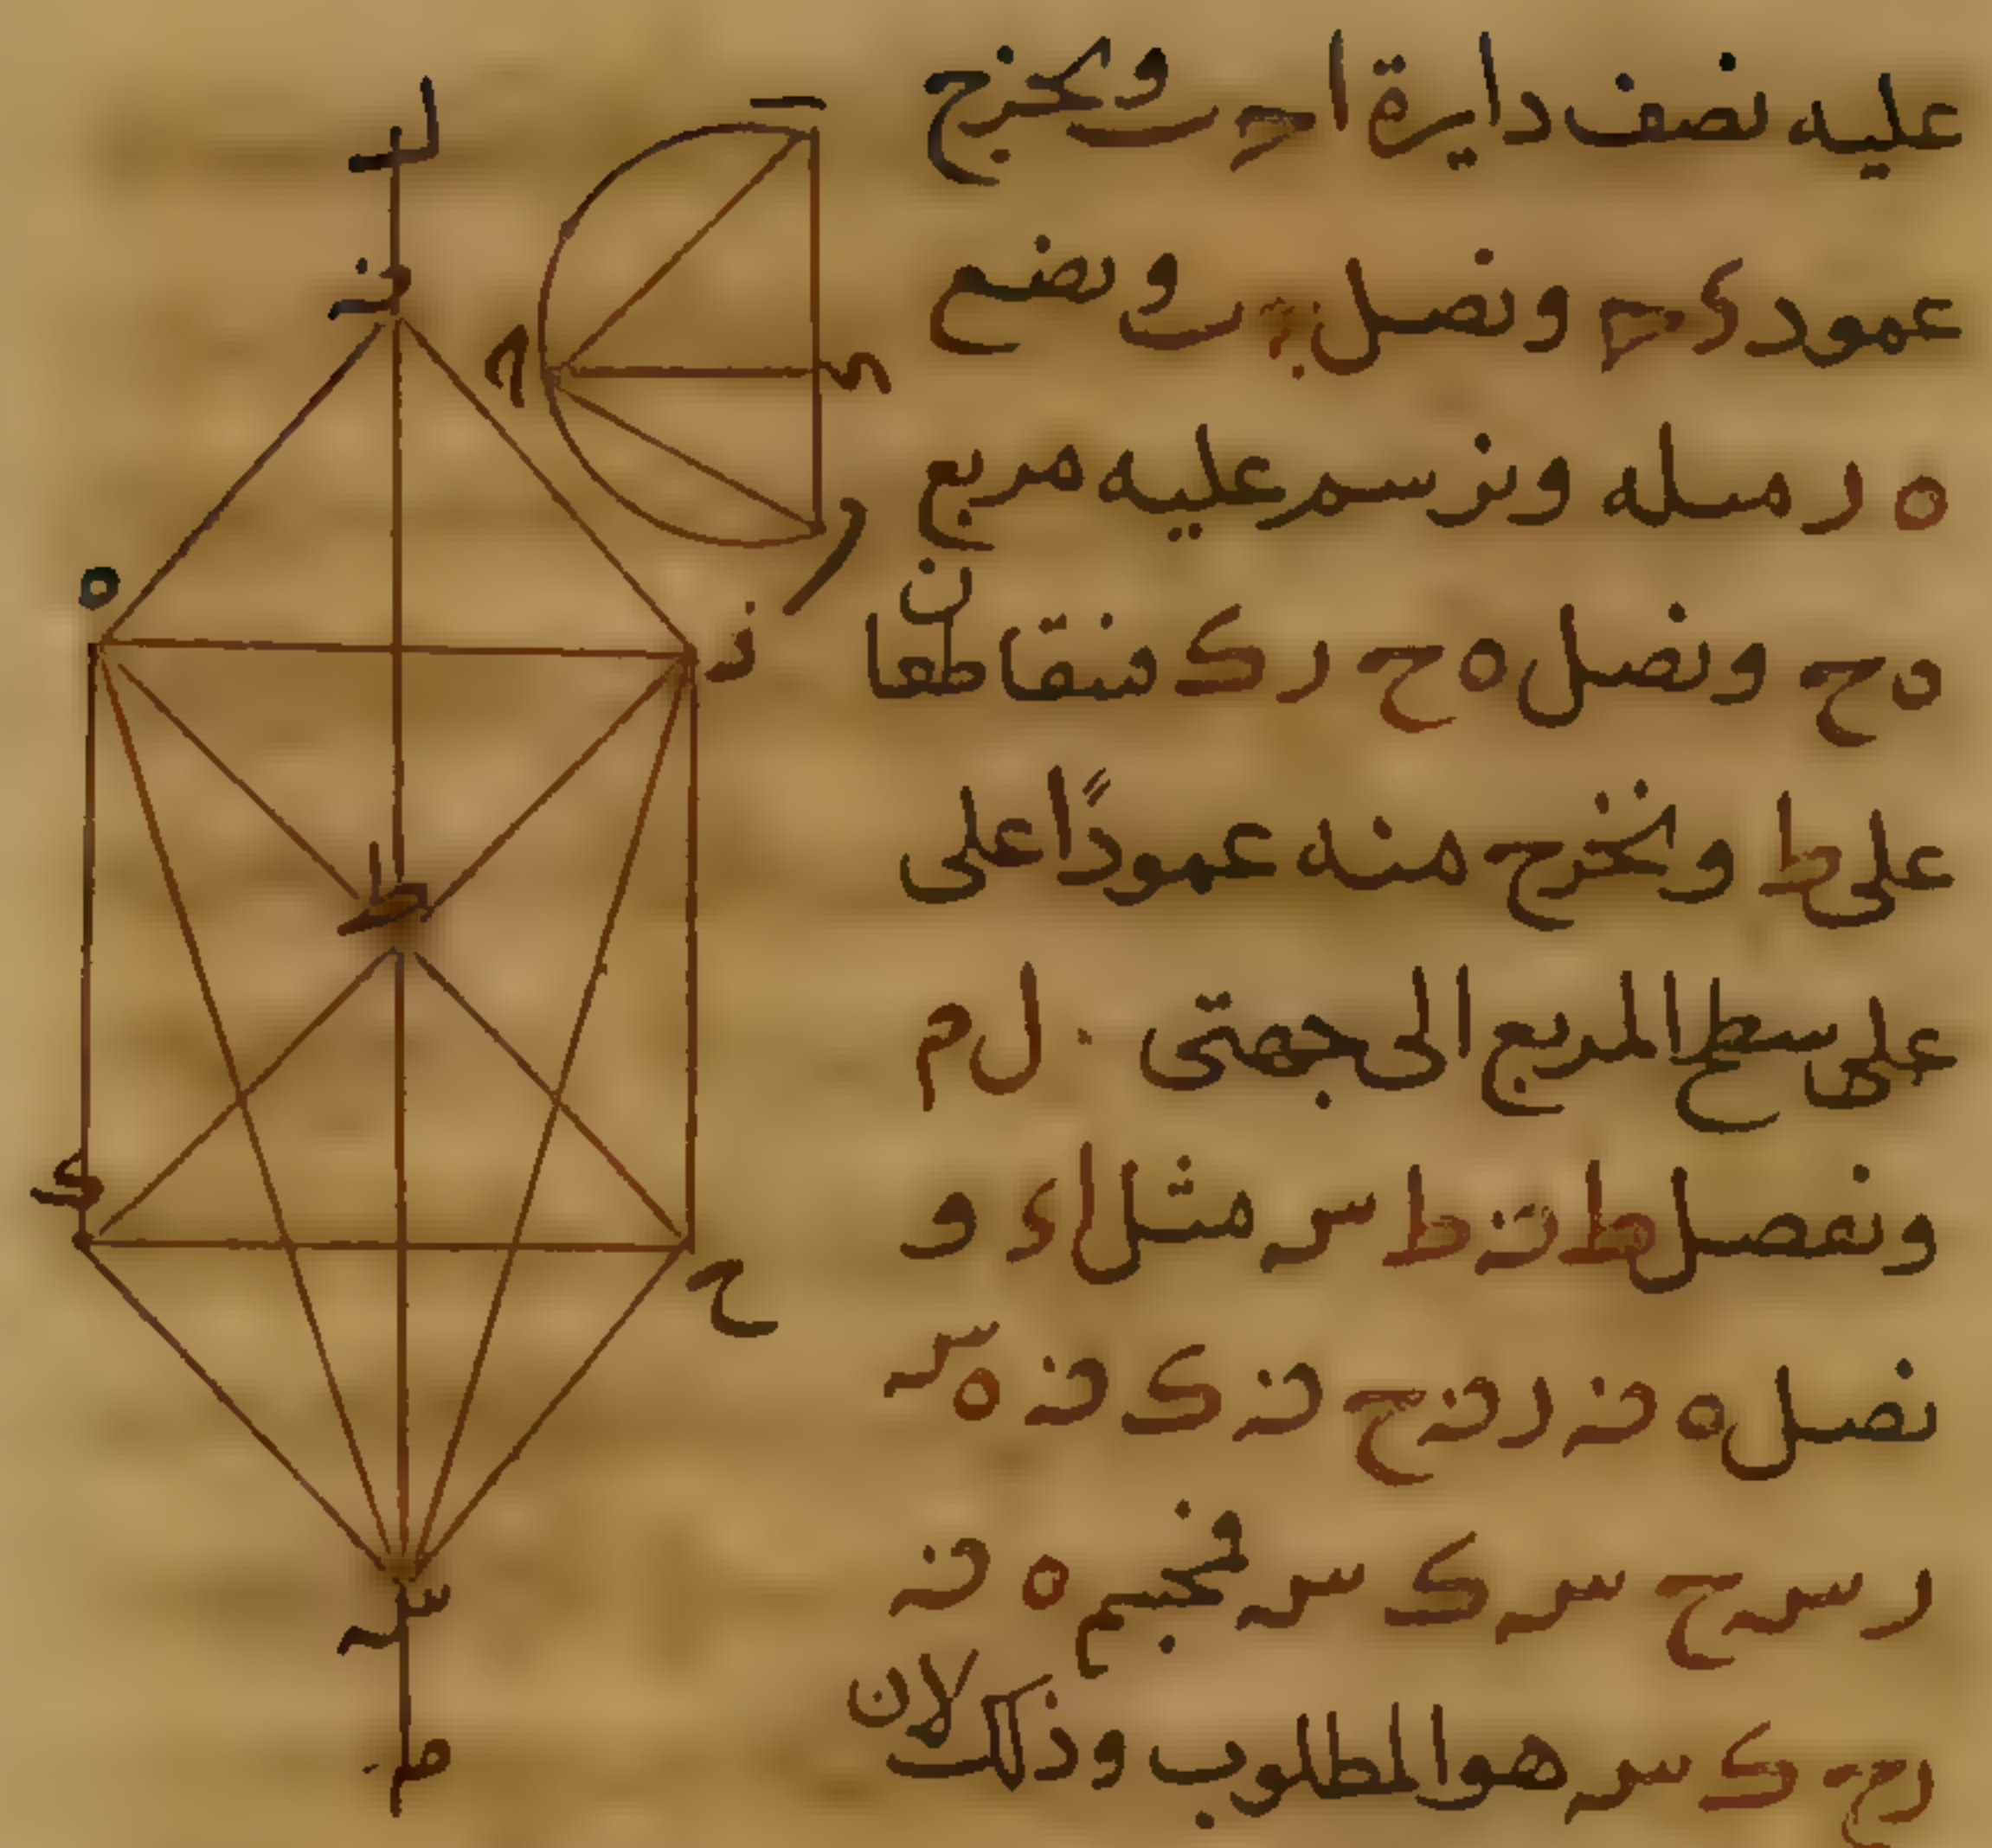 عليه نصف دايرة ا حـ ب ونخرج
عمود ى ح ونصل ب ونضع
ه ر مىله ونرسم عليه مربع
ه ح ونصل ه ح ر ك فىىقاطعان
على ط ونخرج منه عمودًا على
على سطح المربع الى جهتى ل م
ونفصل ط ن ط س مثل ا ء و
نصل ه ن ر ن ح ن ك ن ه س
ر س ح س ك س فمجسم ه ن
ر ح ك س هو المطلوب وذلك لان
ل
ا
ن
ح
ى
ب
ه
ر
ط
ك
ح
س
م